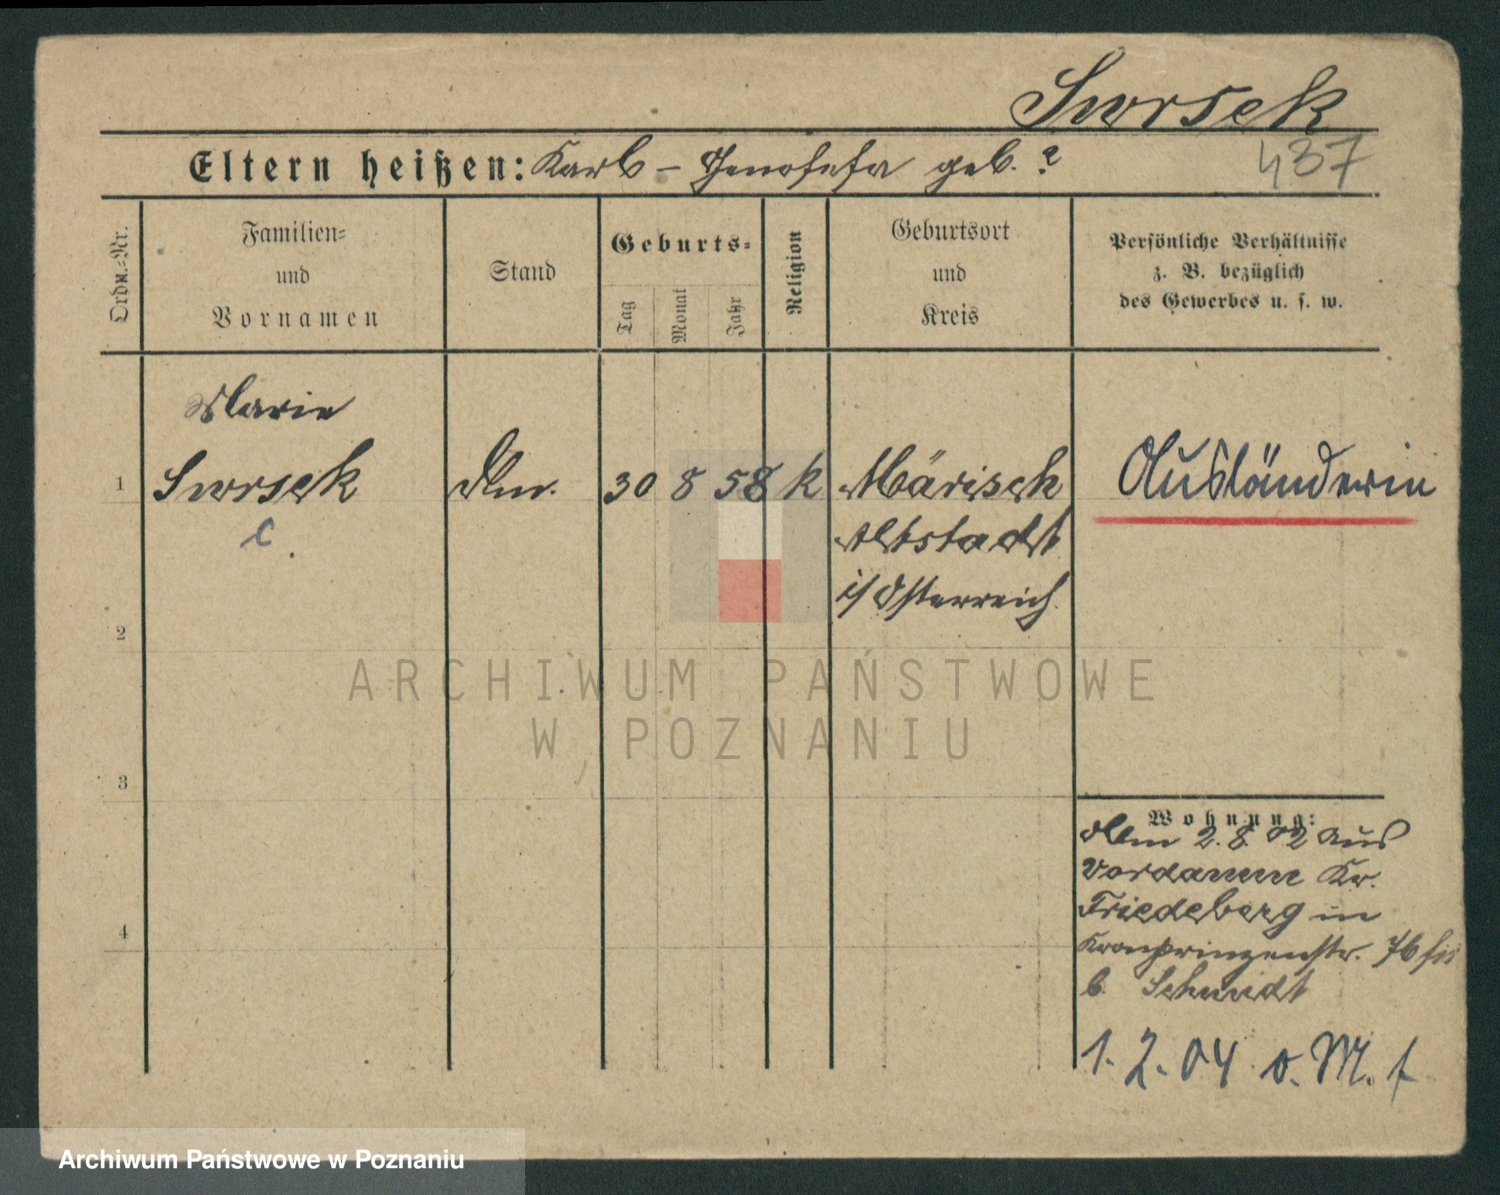 Sworsek
Eltern heißen: Karl – Genofefa geb. ?
437
Ordn.-Nr.
Familien-
und
Vornamen
Stand
Geburts-
Tag
Monat
Jahr
Religion
Geburtsort
und
Kreis
Persönliche Verhältnisse
z. B. bezüglich
des Gewerbes u. s. w.
Marie
1 Sworsek 30 8 58 k Märisch Ausländerin
Altstadt
i/ Österreich
2
3
4
Wohnung:
2.8.02 aus
Vordamm Kr.
Friedeberg in
Kronprinzenstr. 76
b. Schmidt
1.2.04 v. M.
ARCHIWUM PAŃSTWOWE
W POZNANIU
Archiwum Państwowe w Poznaniu